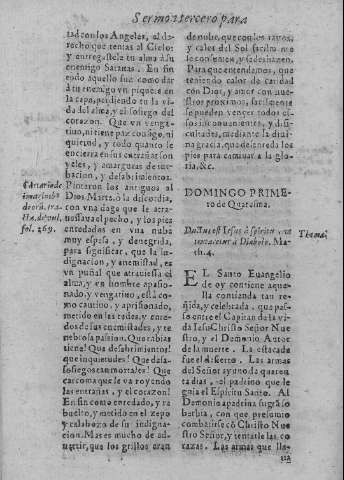 Sermon tercero para
tad con los Angeles, al da-
recho que tenias al Cielo:
y entregaste tu alma a su
enemigo Satanas. En fin
todo aquello fue como dar
à tu enemigo vn piquete en
la capa, perdiendo tu la vi-
da del alma, y el sossiego del
corazon. Que vn venga-
tiuo, ni tiene paz consigo, ni
quietud, y todo quanto se
encierra en sus entrañas son
yeles, y amarguras de tur-
bacion, y desabrimientos.
Pintaron los antiguos al
Dios Marte, ò la discordia,
con vna daga que le atra-
uessaua el pecho, y los pies
enredados en vna nube
muy espesa, y denegrida,
para significar, que la in-
dignacion, y enemistad, es
vn puñal que atrauiessa el
alma, y vn hombre apasio-
nado, y vengatiuo, està co-
mo cautiuo, y aprisionado,
metido en las redes, y enre-
dos de sus enemistades, y te
nebrosa passion. Que rabias
tiene! Que desabrimientos!
que inquietudes! Que desa-
sosiegos tan mortales! Que
carcoma que le va royendo
las entrañas, y el corazon!
En fin como enredado, y ra
buelto, y metido en el zepo
y calabozo de su indigna-
cion. Mas es mucho de ad-
uertir, que los grillos eran
Cartario de
imag.
fol. 269.
de nube, que con los rayos,
y calor del Sol facilmente
se consumen, y se deshazen.
Para que entendamos, que
teniendo calor de caridad
con Dios, y amor con nue-
stros proximos, facilmente
se pueden vencer todos es-
tos inconuenientes, y di-
ficultades, mediante la diui-
na gracia, que desenreda los
pies para caminar a la glo-
ria, &c.
DOMINGO PRIME-
ro de Quaresma.
Ductus est Iesus à spiritu, vt
tentaretur à Diabolo. Ma-
th. 4.
Thema.
EL Santo Euangelio
de oy contiene aque-
lla contienda tan re-
ñida, y celebrada, que pas-
sò entre el Capitan de la vi-
da Iesu Christo Señor Nue
stro, y el Demonio Autor
de la muerte. La estacada
fue el disierto. Las armas
del Señor ayuno de quaren
ta dias, el padrino que le
guia el Espiritu Santo. Al
Demonio apadrina su gran so
berbia, con que presumiò
combatirse cò Christo Nue
stro Señor, y tentarle las co
razas. Las armas que lle-
ua